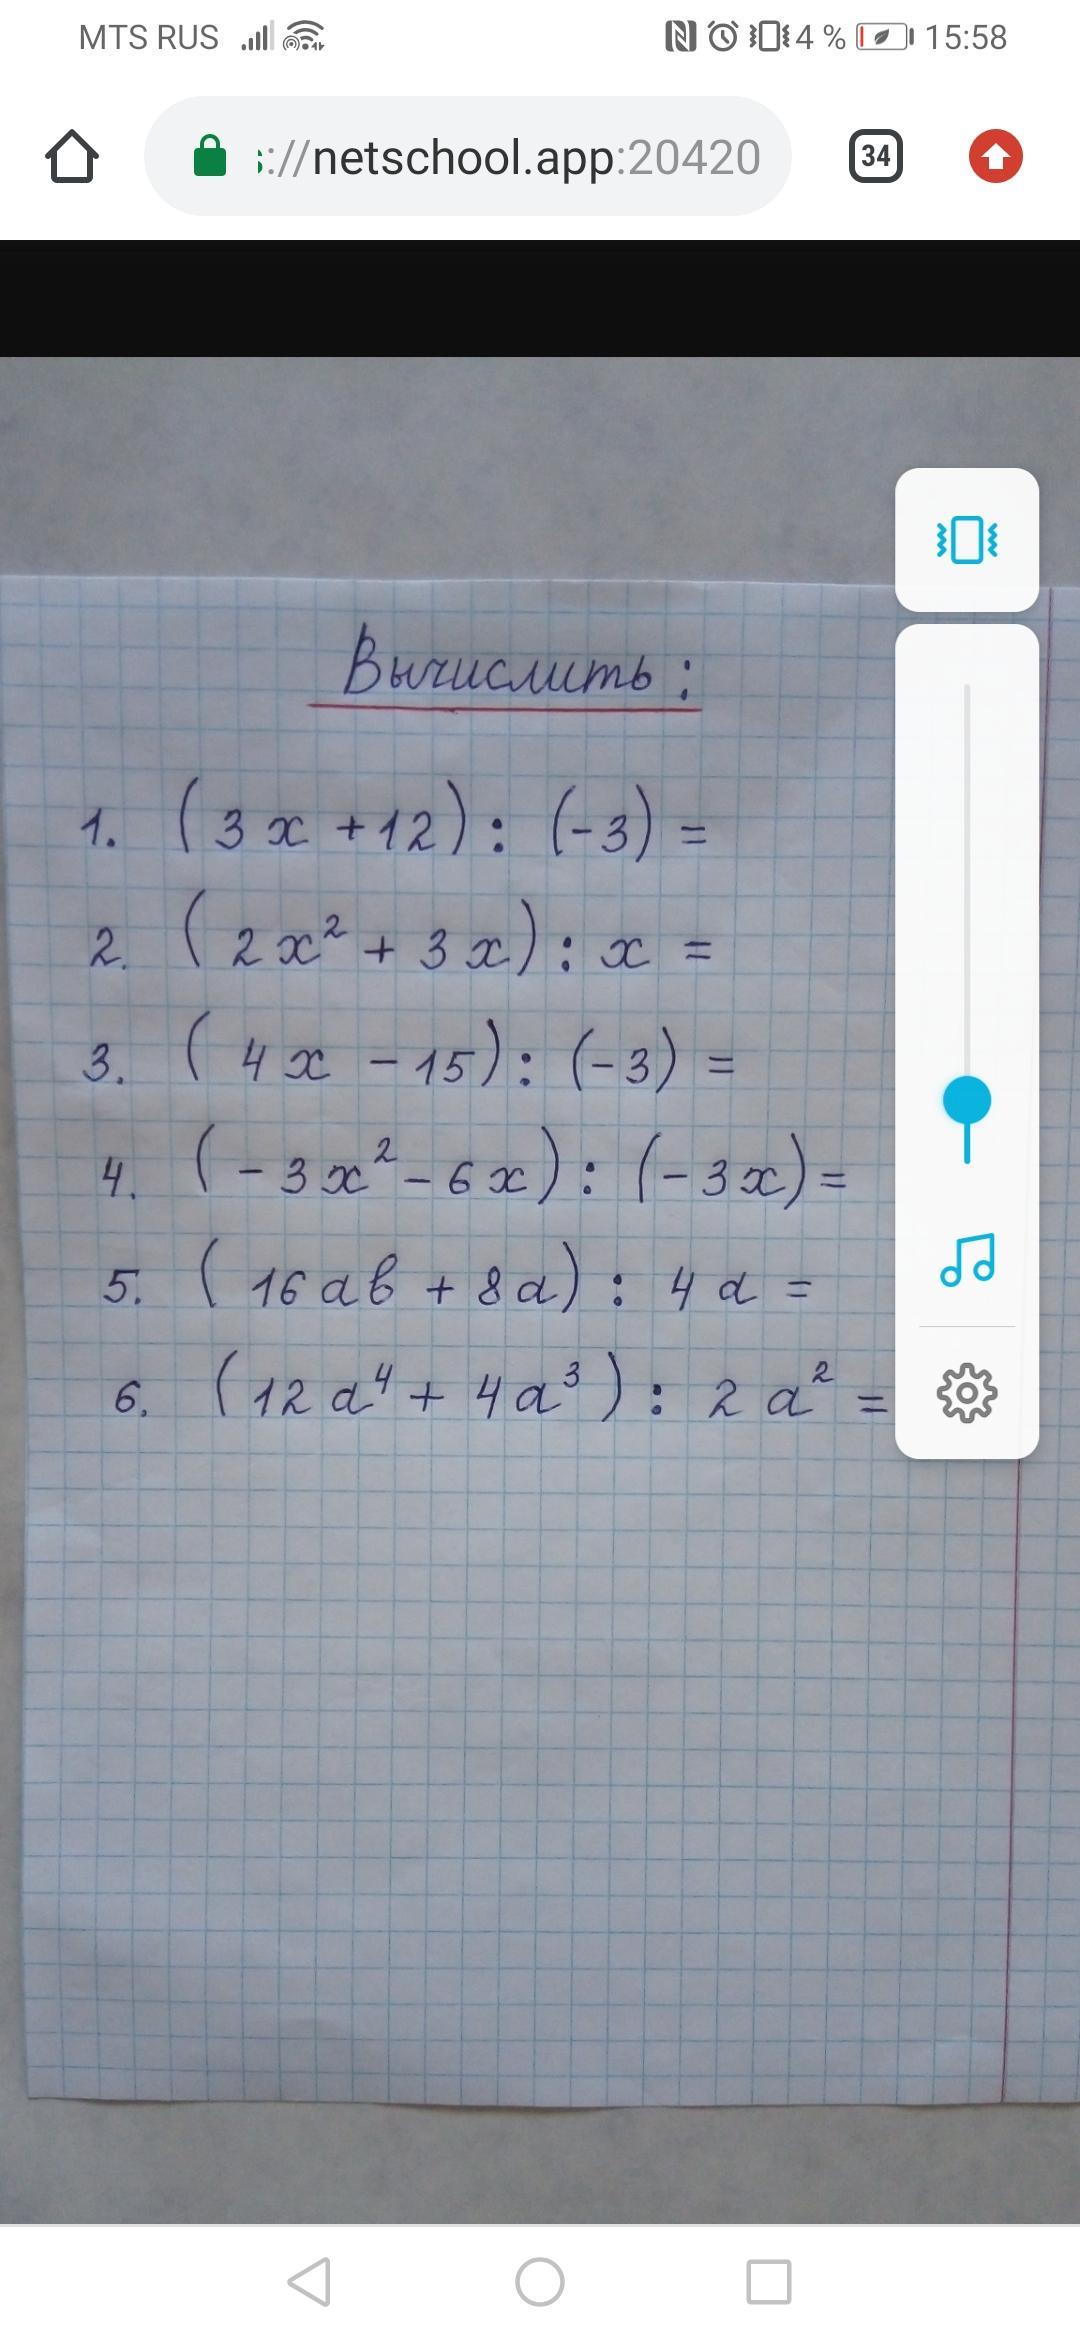 MTS RUS 4 % 15:58
s://netschool.app:20420 34
Вычислить:
1. (3x+12): (-3) =
2. (2x² + 3x): x =
3. (4x - 15): (-3) =
4. (-3x² - 6x): (-3x) =
5. (16ab + 8a): 4a =
6. (12a⁴ + 4a³): 2a² =